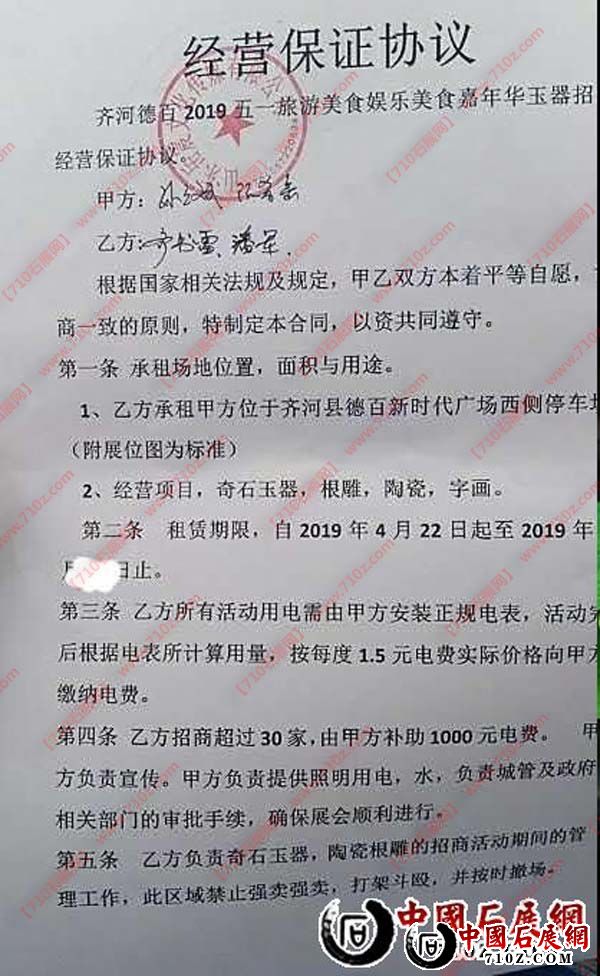 经营保证协议
齐河德百 2019 五一旅游美食娱乐美食嘉年华玉器招
经营保证协议。
甲方：
乙方：
根据国家相关法规及规定，甲乙双方本着平等自愿，
商一致的原则，特制定本合同，以资共同遵守。
第一条 承租场地位置，面积与用途。
1、乙方承租甲方位于齐河县德百新时代广场西侧停车场
（附展位图为标准）
2、经营项目，奇石玉器，根雕，陶瓷，字画。
第二条 租赁期限，自 2019 年 4 月 22 日起至 2019 年
月 日止。
第三条 乙方所有活动用电需由甲方安装正规电表，活动完
后根据电表所计算用量，按每度 1.5 元电费实际价格向甲方
缴纳电费。
第四条 乙方招商超过 30 家，由甲方补助 1000 元电费。 甲
方负责宣传。甲方负责提供照明用电，水，负责城管及政府
相关部门的审批手续，确保展会顺利进行。
第五条 乙方负责奇石玉器，陶瓷根雕的招商活动期间的管
理工作，此区域禁止强卖强卖，打架斗殴，并按时撤场。
中國石展網
710Z.COM
【710石展网】
www.710z.com